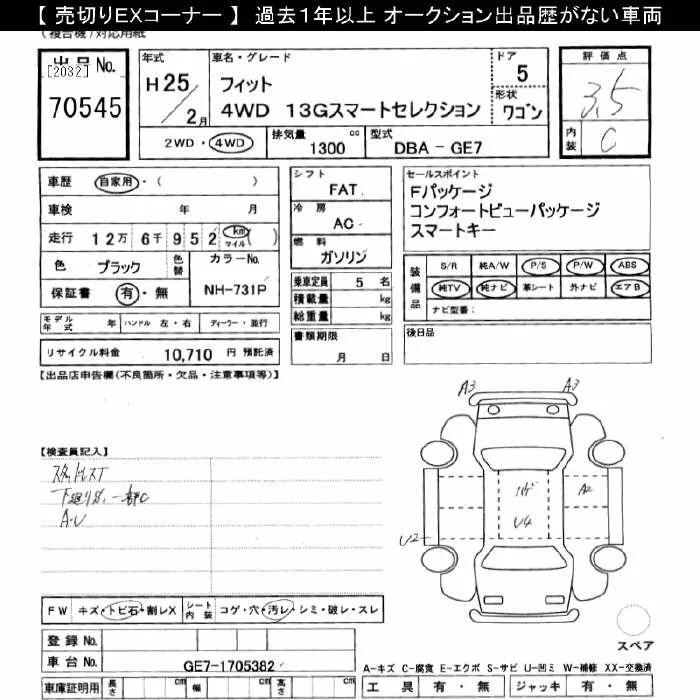 【 売切りEXコーナー 】 過去1年以上 オークション出品歴がない車両
(複合機)対応用紙
出品No.
[2032]
70545
年式
H25/2月
車名・グレード
フィット
4WD 13Gスマートセレクション
ドア
5
形状
ワゴン
評価点
3.5
内装
C
2WD・4WD
排気量
1300 cc
型式
DBA - GE7
車歴 自家用・( )
車検 年 月
走行 12万 6千 9 5 2 km マイル ( )
色 ブラック 色替
カラーNo.
保証書 有・無 NH-731P
シフト
FAT
冷房
AC
燃料
ガソリン
乗車定員 5 名
積載量 kg
総重量 kg
書類期限
月 日
セールスポイント
Fパッケージ
コンフォートビューパッケージ
スマートキー
装備品
S/R 純A/W P/S P/W ABS
純TV 純ナビ 革シート 外ナビ エアB
ナビ型番:
後日品
モデル年式 年 ハンドル 左・右 ディーラー・並行
リサイクル料金 10,710 円 預託済
【出品店申告欄(不良箇所・欠品・注意事項等)】
【検査員記入】
A・U
A3 A3
A2
U4
U2
FW キズ・トビ石・割レX シート内装 コゲ・穴・汚レ・シミ・破レ・スレ
登録No.
車台No. GE7-1705382
スペア
A-キズ C-腐食 E-エクボ S-サビ U-凹ミ W-補修 XX-交換済
車庫証明用 長さ cm 幅 cm 高さ cm
工具 有・無 ジャッキ 有・無